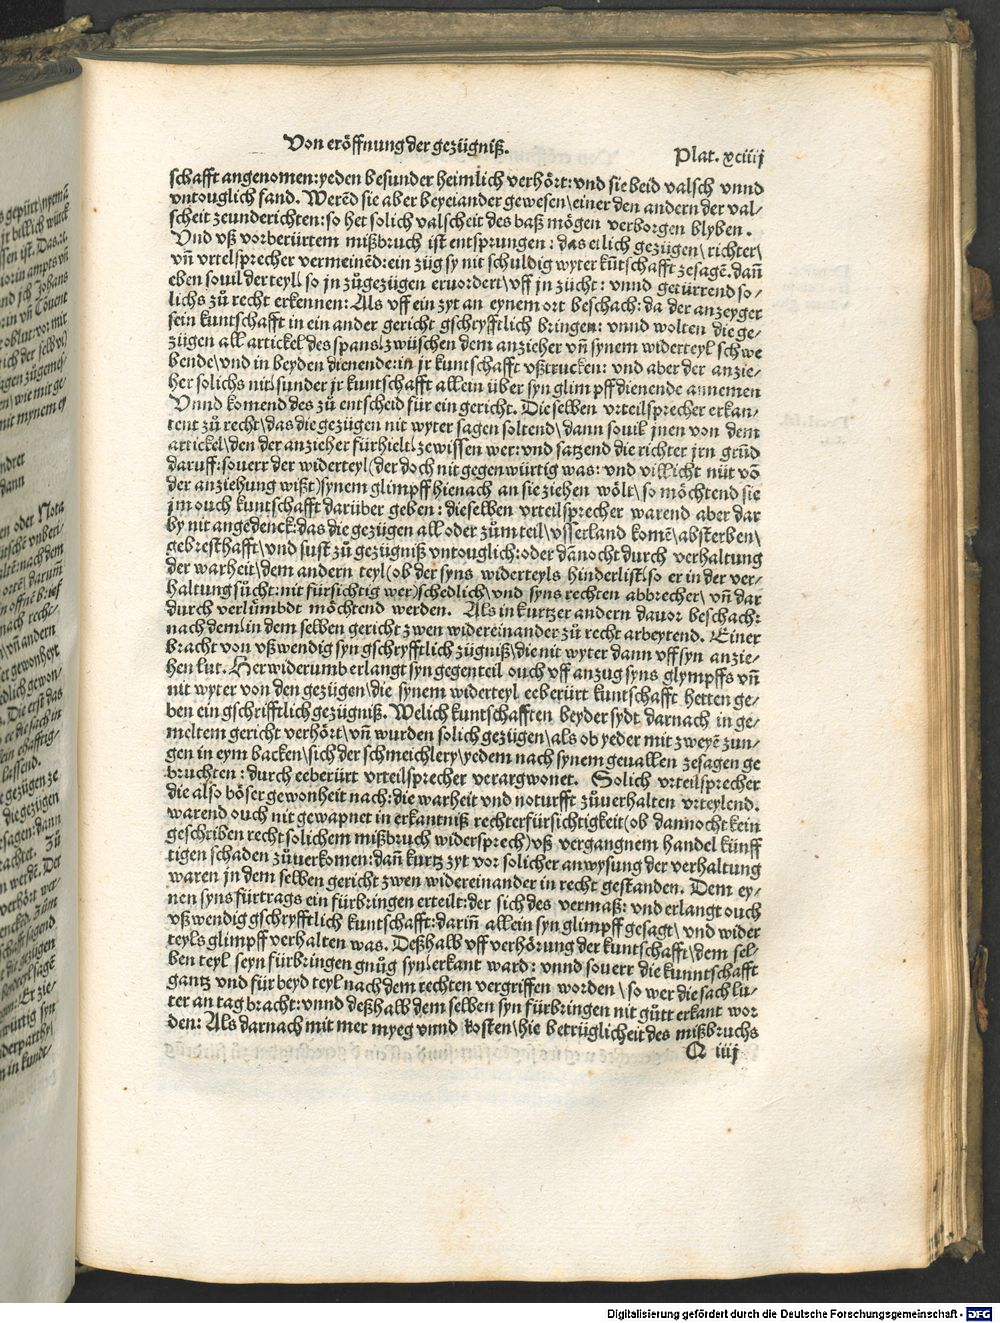 Von eröffnung der gezügniß.
Plat. xciiij
schafft angenomen: yeden besunder heimlich verhört: vnd sie beid valsch vnnd
vntouglich fand. Werēd sie aber beyeiander gewesen\ einer den andern der val⸗
scheit zeunderichten: so het solich valscheit des baß mögen verborgen blyben.
Vnd vß vorberürtem mißbruch ist entsprungen: das etlich gezügen\ richter\
vn̄ vrtelsprecher vermeinēd: ein züg sy nit schuldig wyter kūtschafft zesagē. dan̄
eben souil der teyl\ so jn zůgezügen eruordert\ vff jn zücht: vnnd getürrend so⸗
lichs zů recht erkennen: Als vff ein zyt an eynem ort beschach: da der anzeyger
sein kuntschafft in ein ander gericht gschryfftlich bringen: vnnd wolten die ge⸗
zügen all artickel des spans\ zwüschen dem anzieher vn̄ synem widerteyl schwe
bende\ vnd in beyden dienende: in jr kuntschafft vßtrucken: vnd aber der anzie⸗
her solichs nit\ sunder jr kuntschafft allein über syn glimpff dienende annemen
Vnnd komend des zů entscheid für ein gericht. Die selben vrteilsprecher erkan⸗
tent zů recht\ das die gezügen nit wyter sagen soltend\ dann souil jnen von dem
artickel\ den der anzieher fürhielt\ zewissen wer: vnd satzend die richter jrn grūd
daruff: souerr der widerteyl (der doch nit gegenwürtig was: vnd villicht nüt vō
der anziehung wißt) synem glimpff hienach an sie ziehen wölt\ so möchtend sie
jm ouch kuntschafft darüber geben: dieselben vrteilsprecher warend aber dar
by nit angedenck: das die gezügen all oder zům teil\ vsserland komē\ absterben\
gebresthafft\ vnd sust zů gezügniß vntouglich: oder dānocht durch verhaltung
der warheit\ dem andern teyl (ob der syns widerteyls hinderlist\ so er in der ver⸗
haltung sůcht: nit fürsichtig wer) schedlich\ vnd syns rechten abbrecher\ vn̄ dar
durch verlümbdt möchtend werden. Als in kurtzer andern dauor beschach:
nach dem\ in dem selben gericht zwen widereinander zů recht arbeytend. Einer
bracht von vßwendig syn gschryfftlich zügniß\ die nit wyter dann vff syn anzie⸗
hen lut. Herwiderumb erlangt syn gegenteil ouch vff anzug syns glympffs vn̄
nit wyter von den gezügen\ die synem widerteyl eeberürt kuntschafft hetten ge⸗
ben ein gschrifftlich gezügniß. Welich kuntschafften beyder sydt darnach in ge⸗
meltem gericht verhört\ vn̄ wurden solich gezügen\ als ob yeder mit zweyē zun⸗
gen in eym backen\ sich der schmeichlery\ yedem nach synem geuallen zesagen ge
bruchten: durch eeberürt vrteilsprecher verargwonet. Solich vrteilsprecher
die also böser gewonheit nach: die warheit vnd noturfft zůuerhalten vrteylend.
warend ouch nit gewapnet in erkantniß rechter fürsichtigkeit (ob dannocht kein
geschriben recht solichem mißbruch widersprech) vß vergangnem handel künff
tigen schaden zůuerkomen: dan̄ kurtz zyt vor solicher anwysung der verhaltung
waren jn dem selben gericht zwen widereinander in recht gestanden. Dem ey⸗
nen syns fürtrags ein fürbringen erteilt: der sich des vermaß: vnd erlangt ouch
vßwendig gschryfftlich kuntschafft: darin̄ allein syn glimpff gesagt\ vnd wider
teyls glimpff verhalten was. Deßhalb vff verhörung der kuntschafft\ dem sel⸗
ben teyl seyn fürbringen gnůg syn\ erkant ward: vnnd souerr die kunntschafft
gantz vnd für beyd teyl nach dem rechten vergriffen worden\ so wer die sach lu⸗
ter an tag bracht: vnnd deßhalb dem selben syn fürbringen nit gůtt erkant wor
den: Als darnach mit mer myeg vnnd kosten\ hie betrüglicheit des mißbruchs
Q iiij
Digitalisierung gefördert durch die Deutsche Forschungsgemeinschaft - DFG